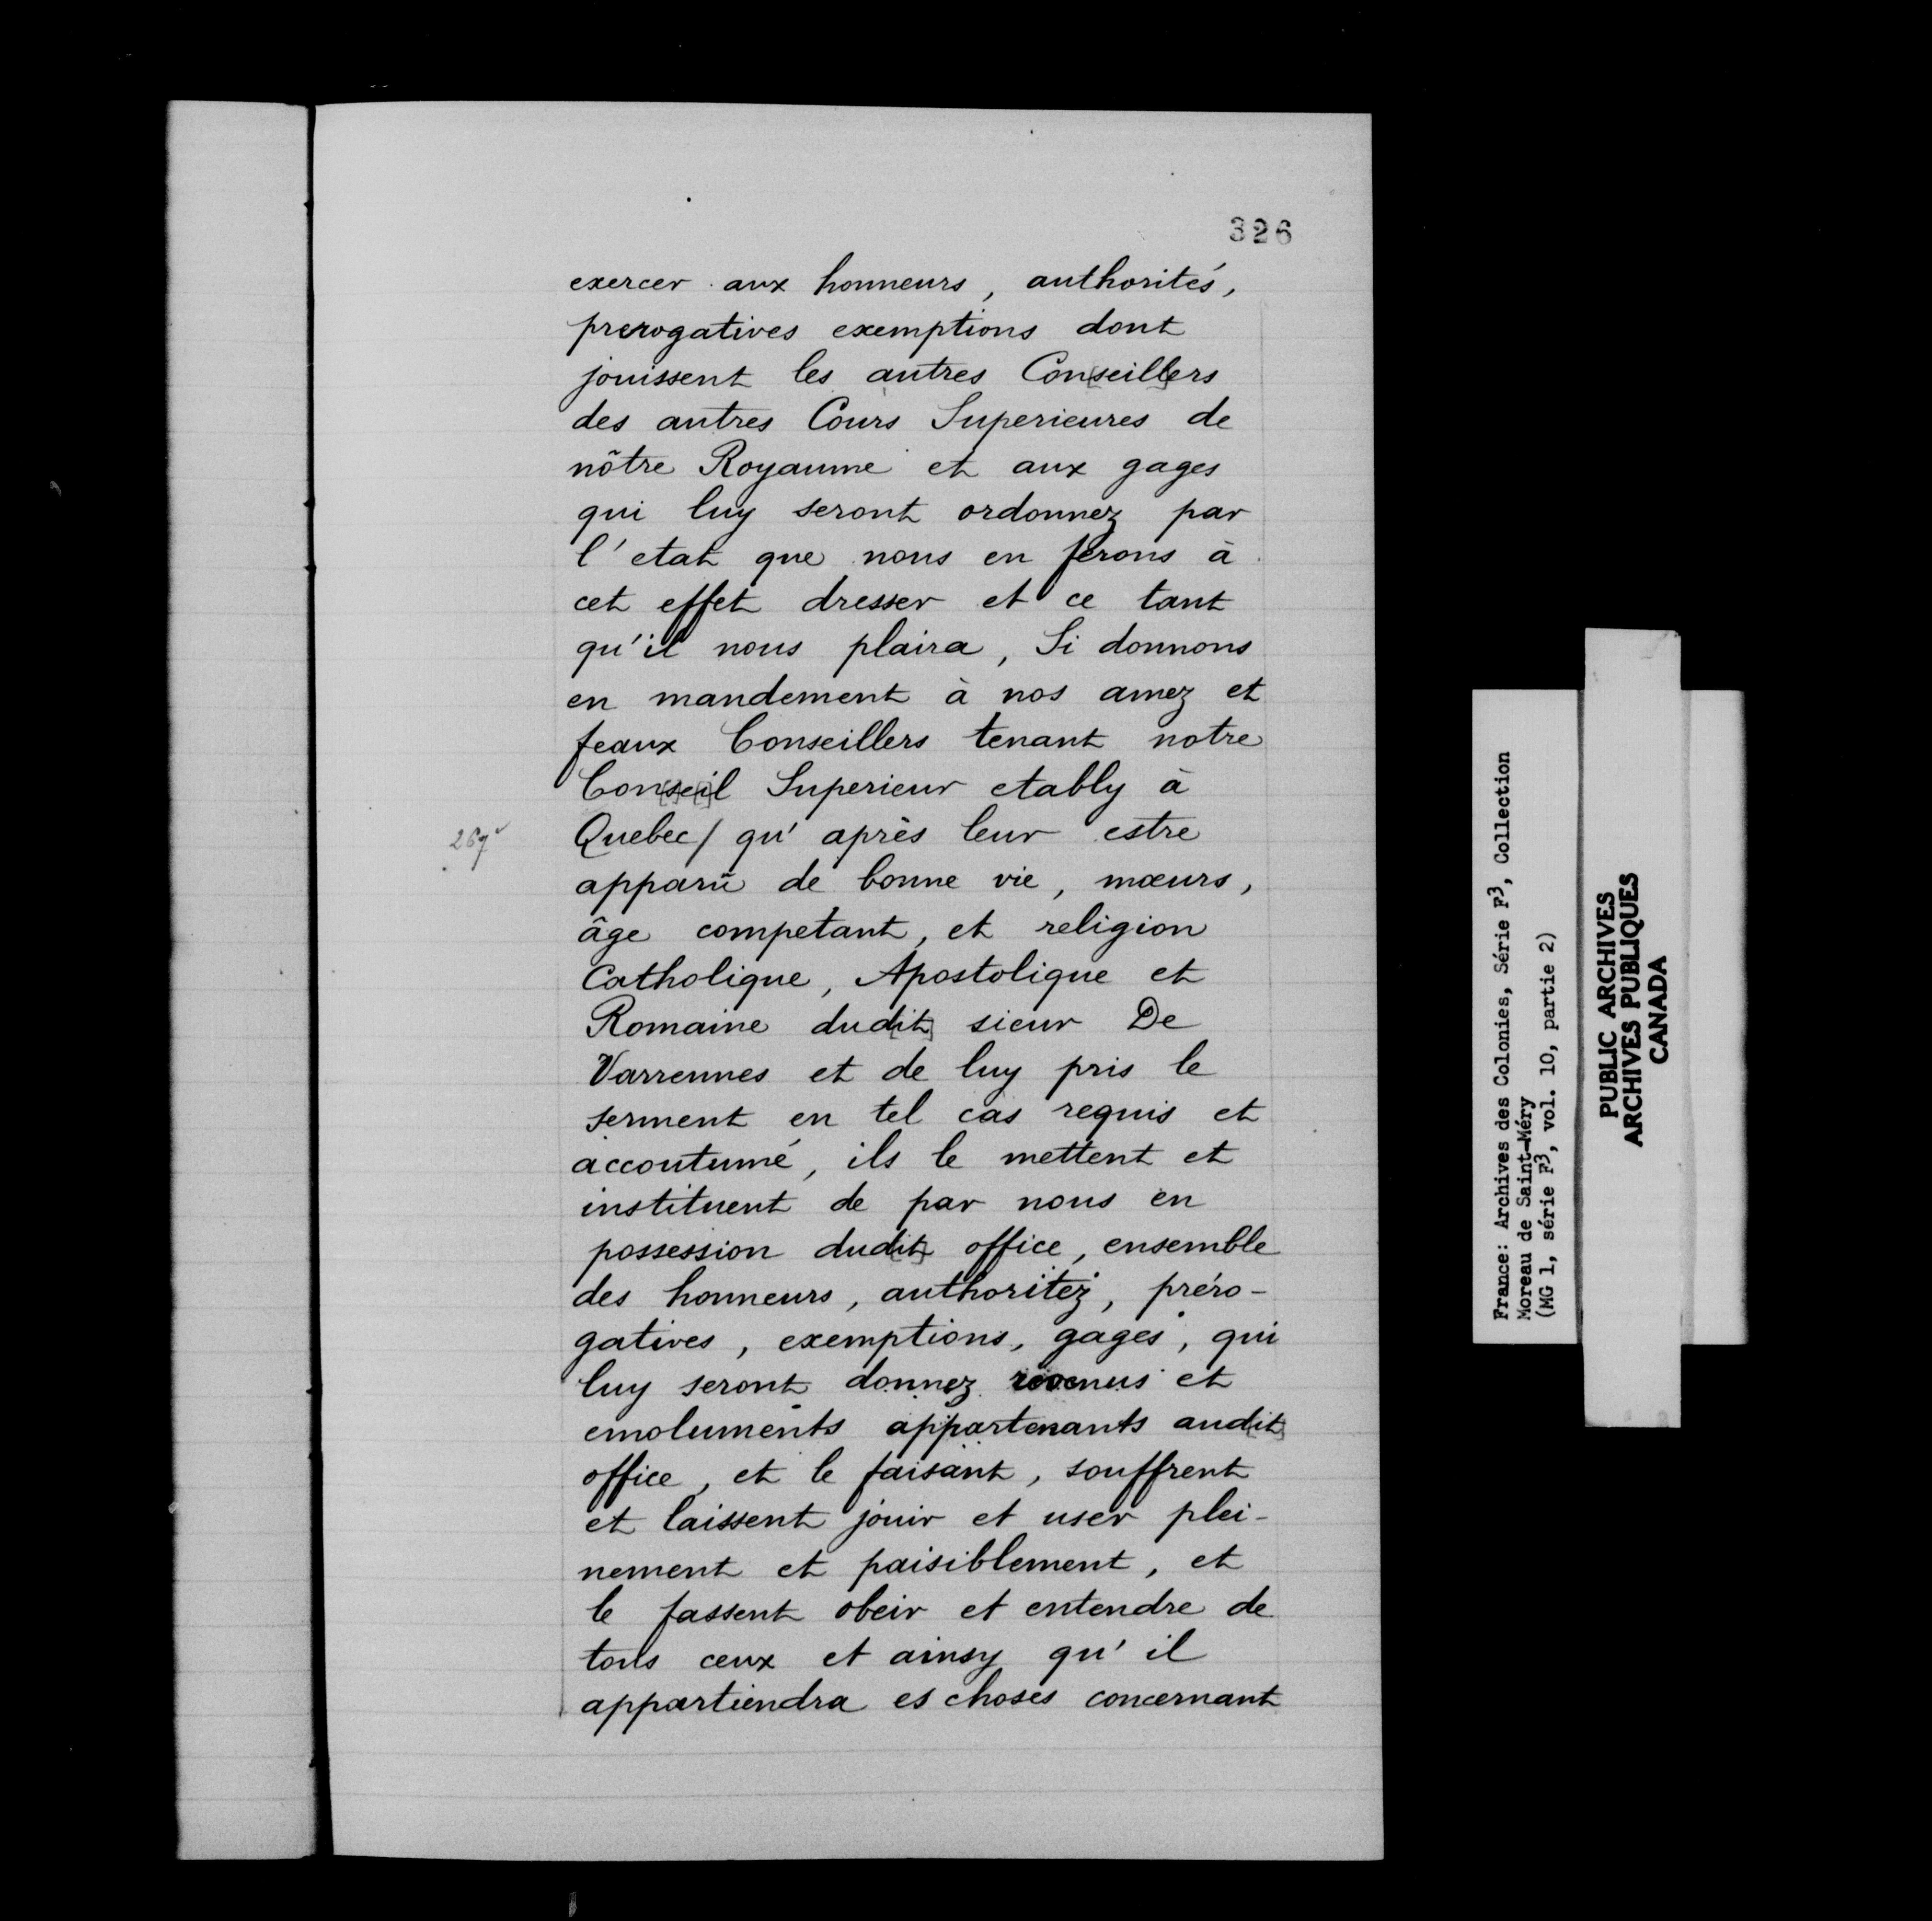 326
exercer aux honneurs, authorités,
prerogatives exemptions dont
jouissent les autres Con[seill]ers
des autres Cours Superieures de
nôtre Royaume et aux gages
qui luy seront ordonnez par
l'etat que nous en ferons à
cet effet dresser et ce tant
qu'il nous plaira, Si donnons
en mandement à nos amez et
feaux Conseillers tenant notre
Con[s]e[i]l Superieur etably à
267v
Quebec/ qu'après leur estre
apparû de bonne vie, mœurs,
âge competant, et religion
Catholique, Apostolique et
Romaine dud[it] sieur De
Varrennes et de luy pris le
serment en tel cas requis et
accoutumé, ils le mettent et
instituent de par nous en
possession dud[it] office, ensemble
des honneurs, authoritéz, préro-
gatives, exemptions, gages, qui
luy seront donnez revenus et
emoluments appartenants aud[it]
office, et le faisant, souffrent
et laissent jouir et user plei-
nement et paisiblement, et
le fassent obeir et entendre de
tous ceux et ainsy qu'il
appartiendra es choses concernant
France: Archives des Colonies, Série F3, Collection
Moreau de Saint-Méry
(MG 1, série F3, vol. 10, partie 2)
PUBLIC ARCHIVES
ARCHIVES PUBLIQUES
CANADA